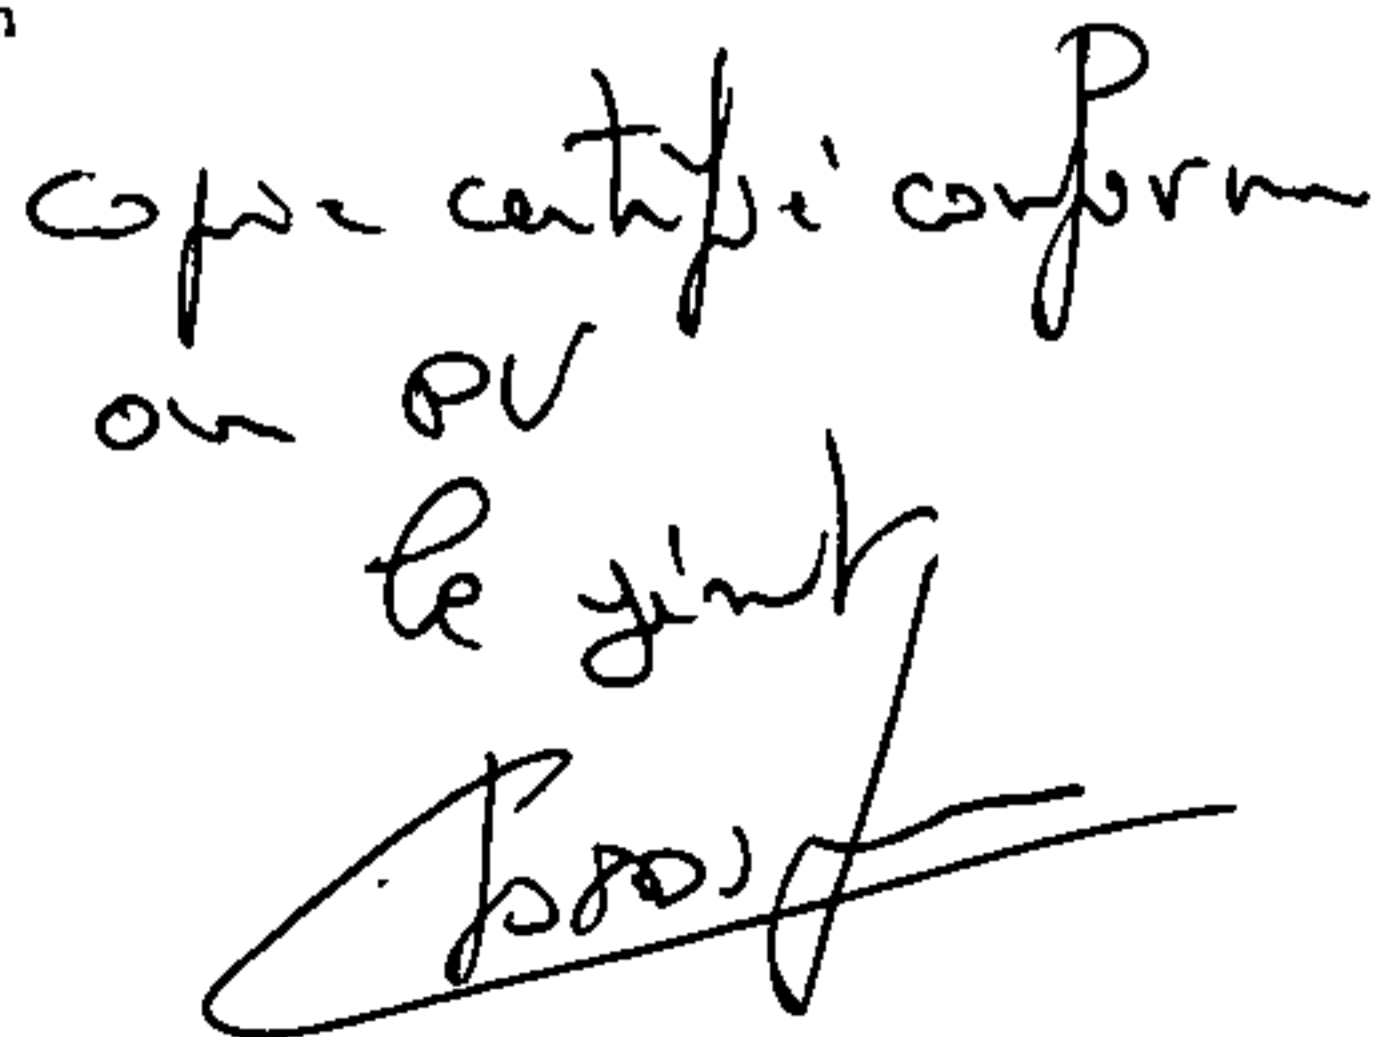 Copie certifié conforme
au PV
le gérant